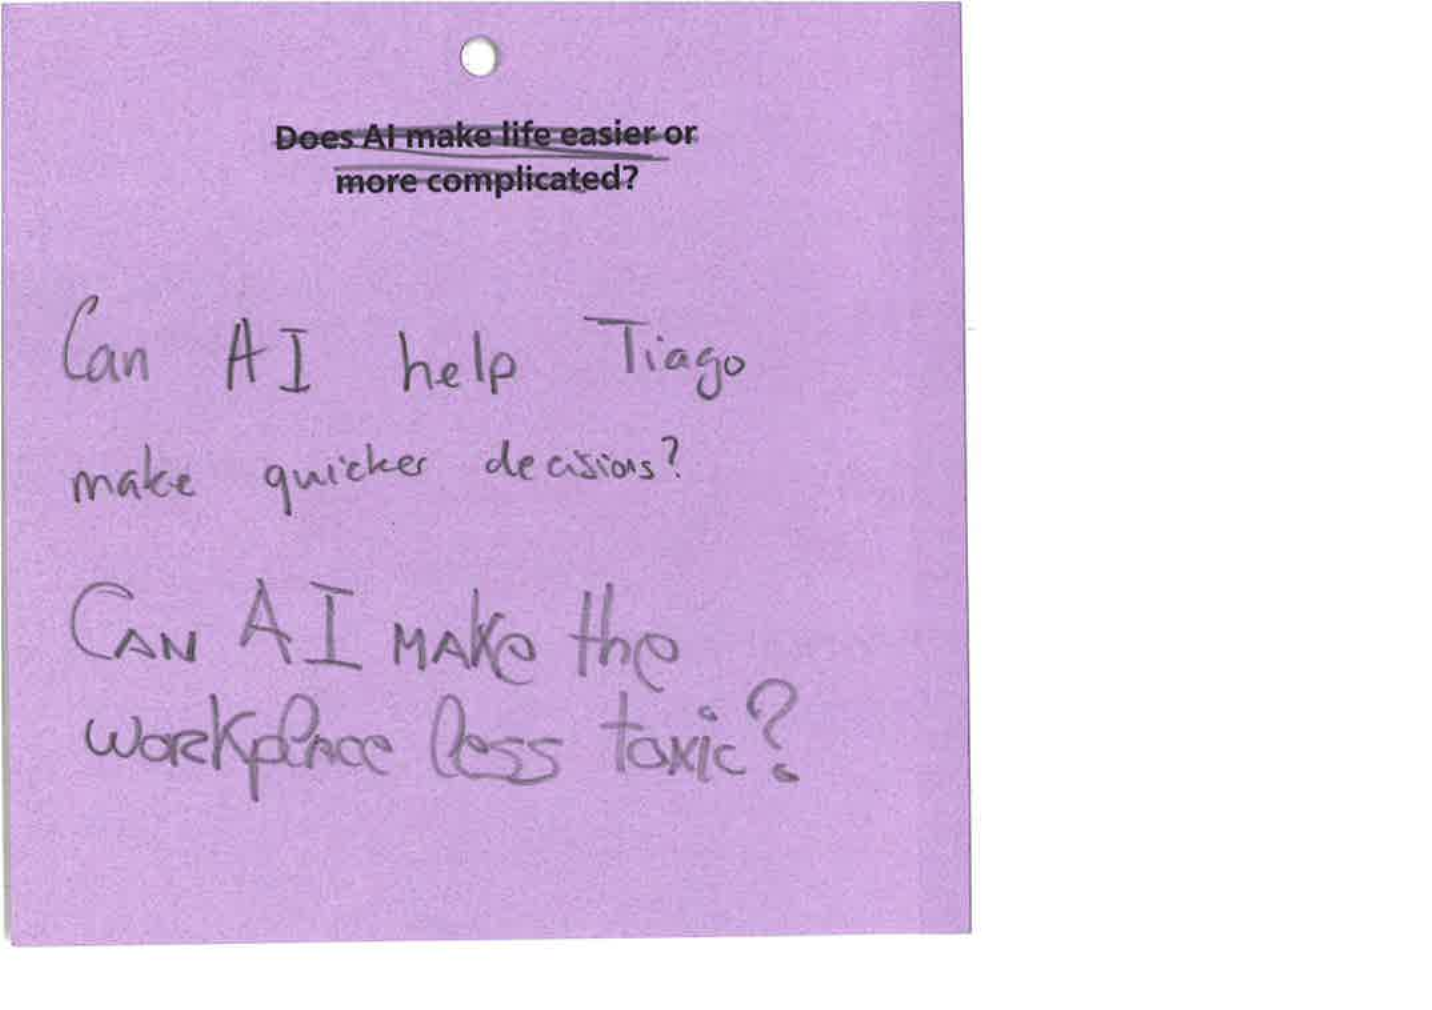 Does AI make life easier or
more complicated?
Can AI help Tiago
make quicker decisions?
CAN AI MAKe the
workplace less toxic?